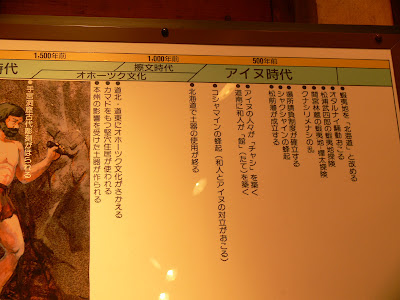 1,500年前
1,000年前
500年前
時代
擦文時代
オホーツク文化
アイヌ時代
●蝦夷地を「北海道」と改める
●オタルナイ騒動おこる
●松浦武四郎の蝦夷地探険
●間宮林蔵の蝦夷地・樺太探険
●クナシリメナシの乱
●場所請負制度が確立する
●シャクシャインの蜂起
●松前藩が成立する
●アイヌの人々が「チャシ」を築く
●道南に和人が「館」(たて)を築く
●コシャマインの蜂起(和人とアイヌの対立がおこる)
●北海道で土器の使用が終る
●道北・道東にオホーツク文化がさかえる
●カマドをもつ竪穴住居が使われる
●本州の影響を受けた土器が作られる